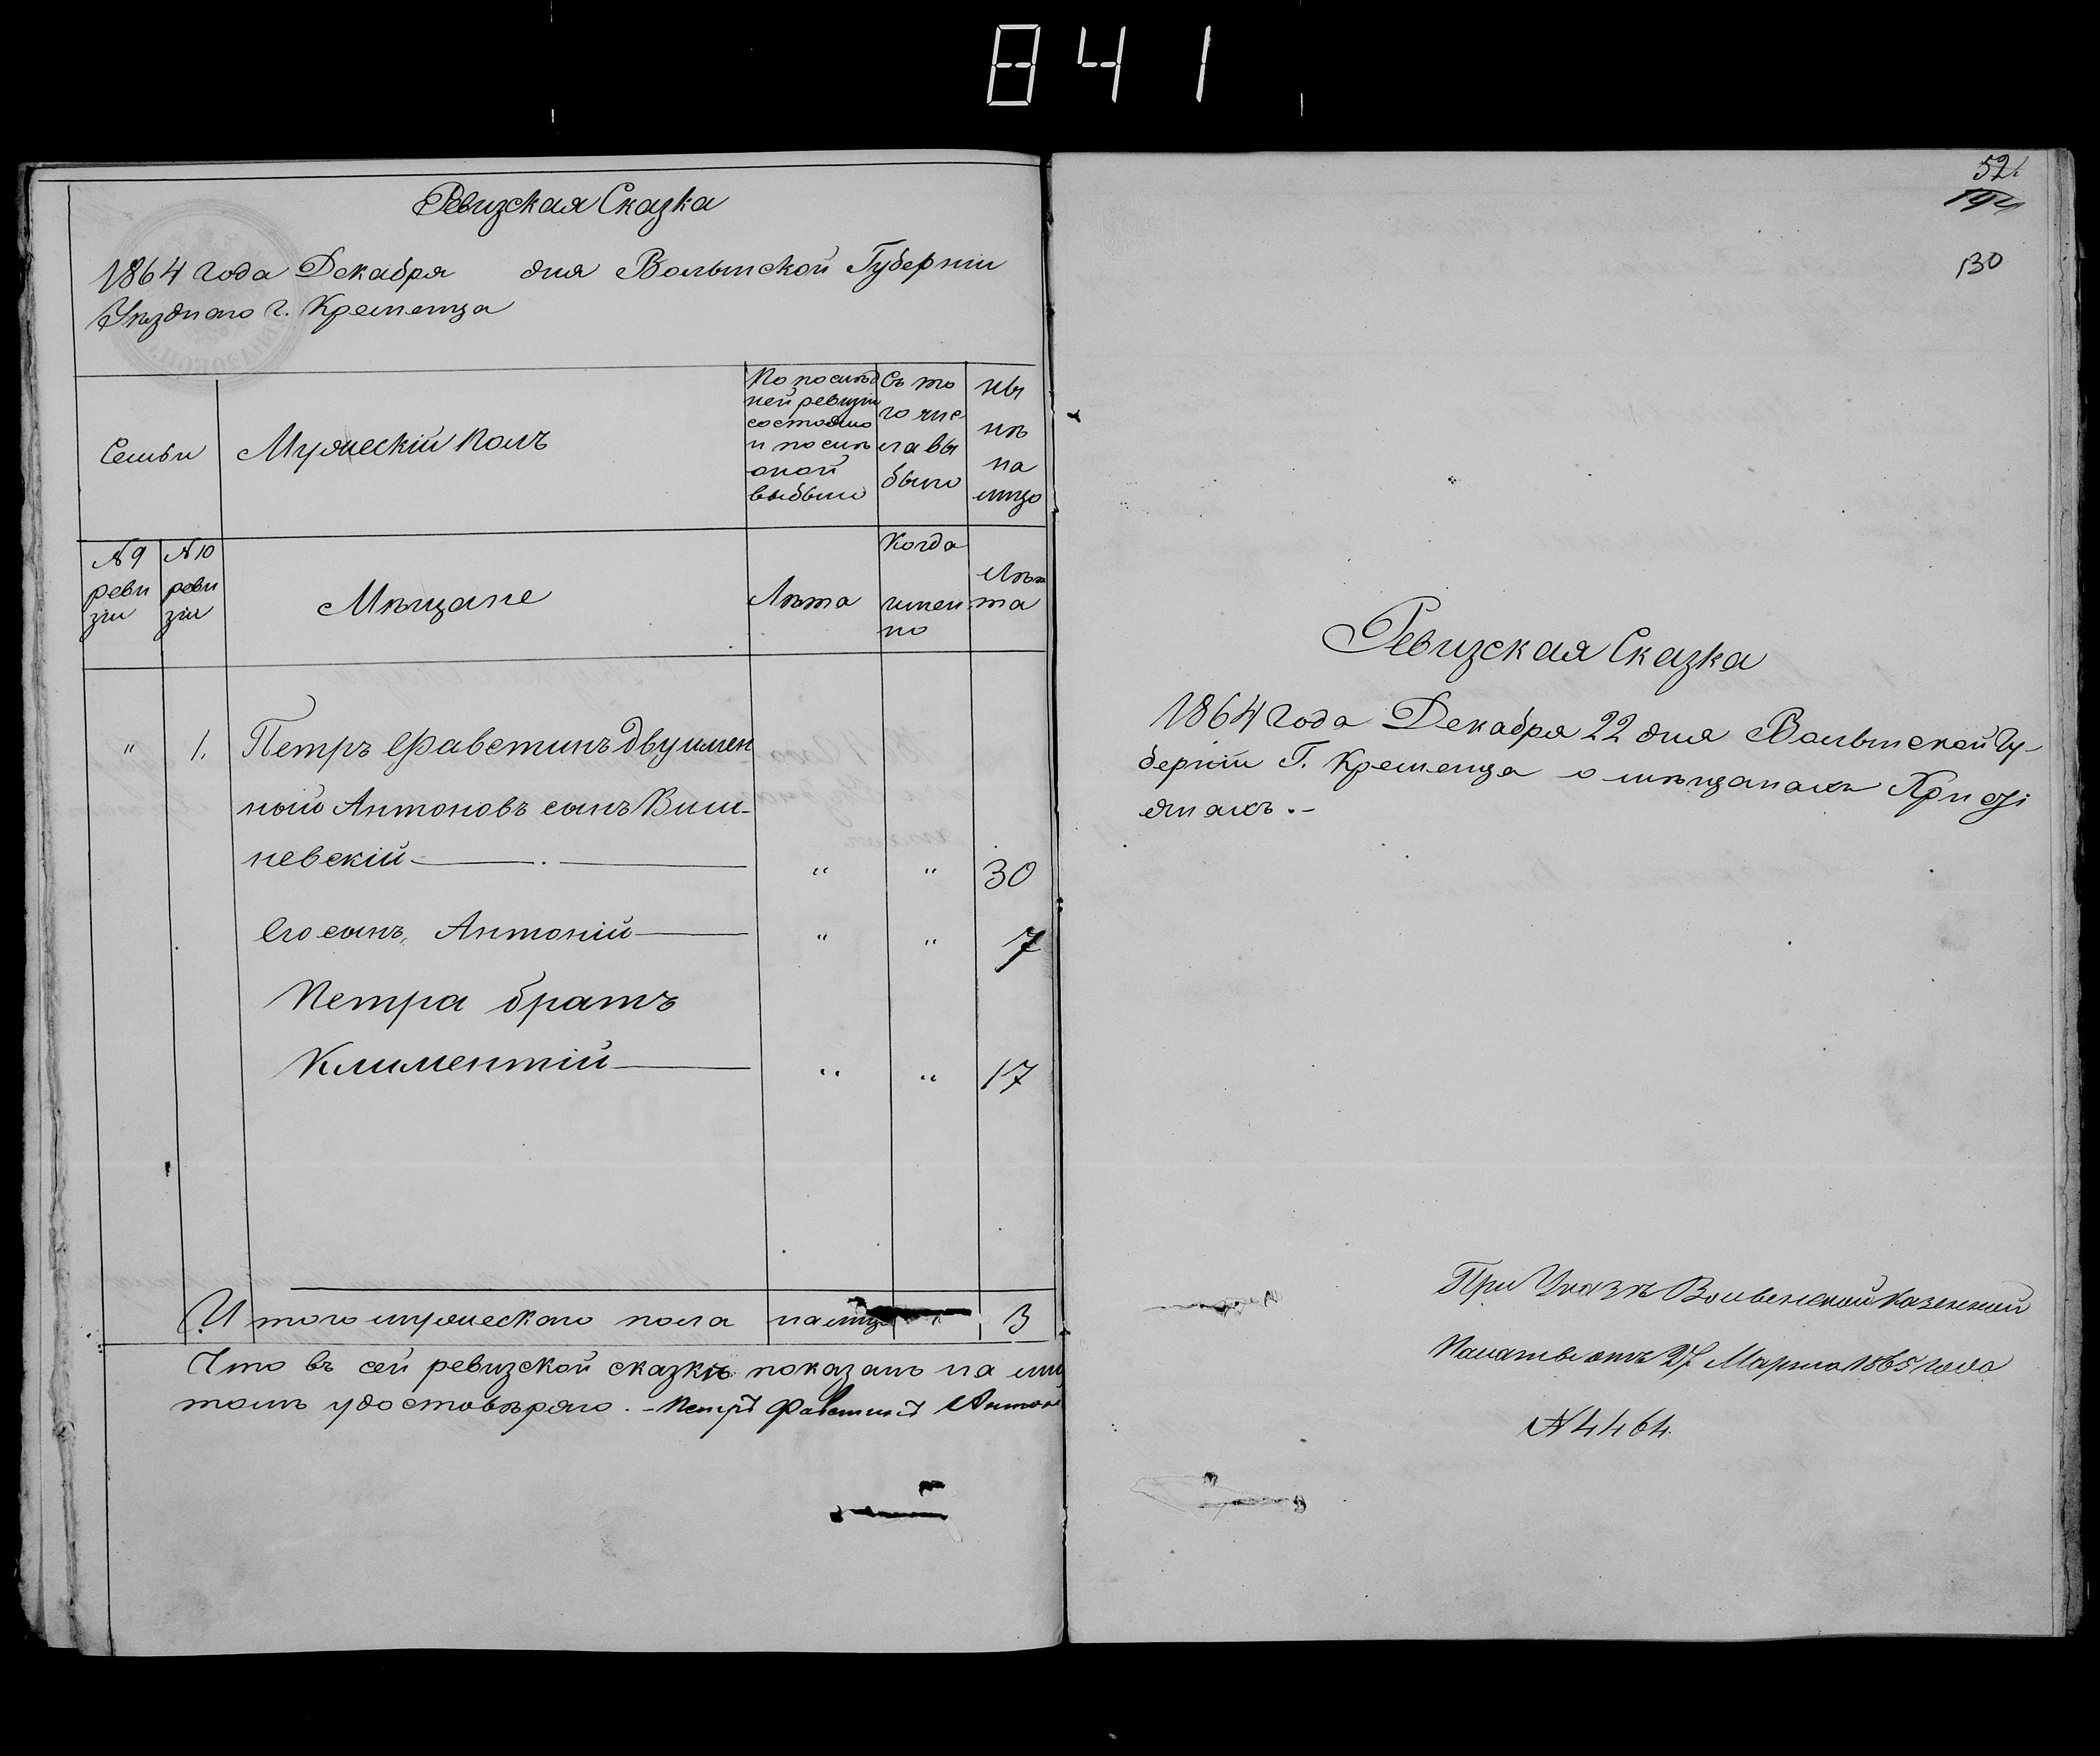 841
Ревизская Сказка
1864 года Декабря дня Волынской Губерніи
Уѣзднаго г. Кременца
Семьи
Мужескій полъ
По послѣд
ней ревизіи
состояло
и послѣ
оной
выбыло
Съ то
го чис
ла вы
было
ны
нѣ
на
лицо
№ 9
реви
зіи
№ 10
реви
зіи
Мѣщане
Лѣта
Когда
имен
но
Лѣ
та
" 1. Петръ Фаветинъ двуимен
ной Антоновъ сынъ Виш-
невскій " " 30
Его сынъ, Антоній " " 7
Петра братъ
Климентій " " 17
Итого мужескаго пола на лицо 3
Что въ сей ревизской сказкѣ показанъ на
томъ удостовѣряю. - Петръ Фаветинъ Антоно
52.
130
Ревизская Сказка
1864 года Декабря 22 дня Волынской Гу-
берніи Г. Кременца о мѣщанахъ Христі
янахъ.-
При Указѣ Волынской Казенной
Палаты отъ 27 Марта 1865 года
№ 4464.